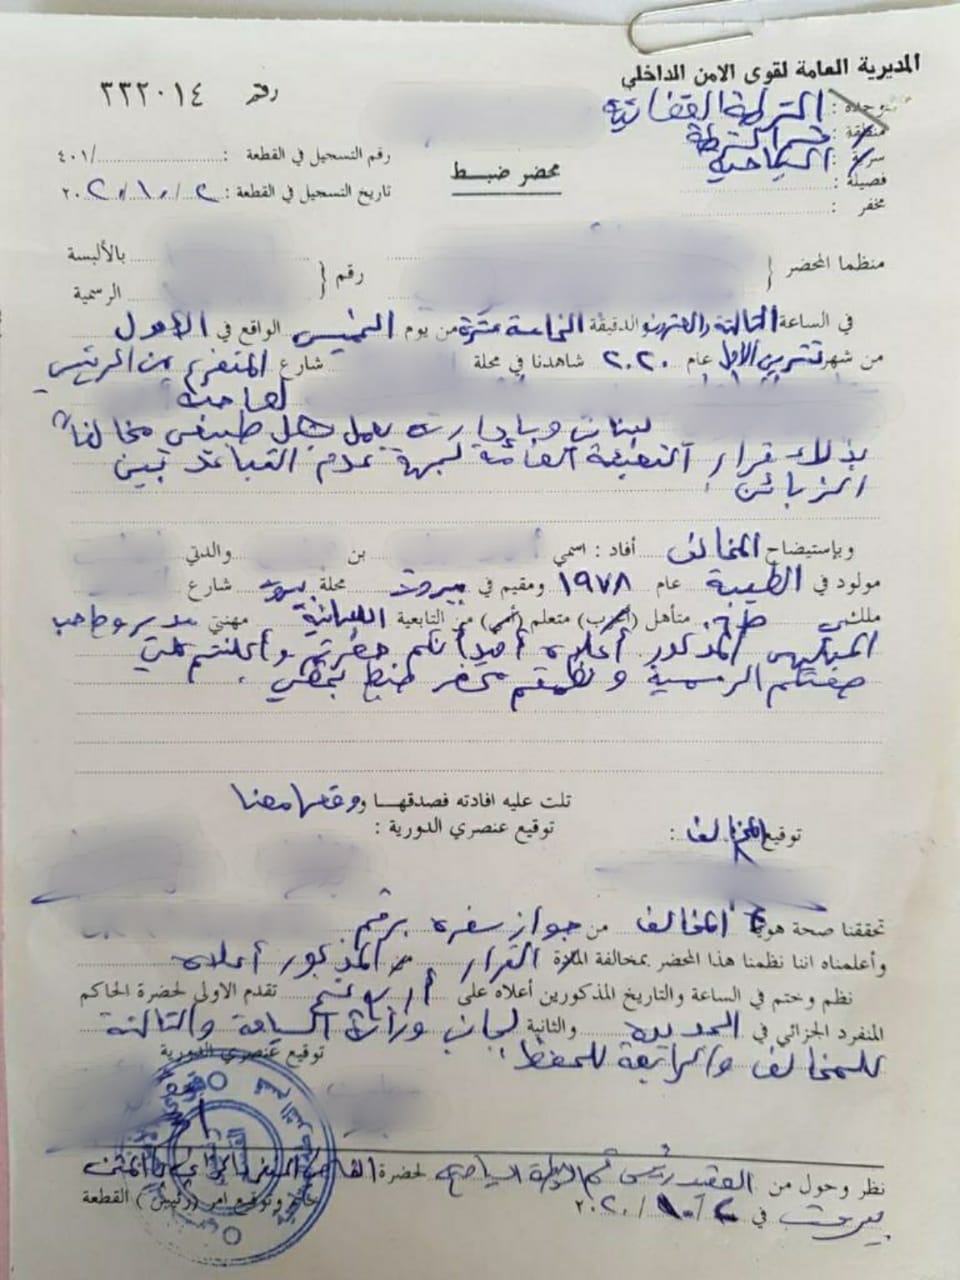 المديرية العامة لقوى الامن الداخلي
رقم ٣٣٢٠١٤
وحدة : الشرطة القضائية
منطقة : قسم الشرطة
سرية : السياحية
فصيلة :
مخفر :
رقم التسجيل في القطعة : ٤٠١/
محضر ضبط
تاريخ التسجيل في القطعة : ٢/١٠/٢٠٢٠
منظما المحضر { رقم { بالألبسة
الرسمية
في الساعة الثالثة والعشرون الدقيقة الخامسة عشرة من يوم الخميس الواقع في الأول
من شهر تشرين الاول عام ٢٠٢٠ شاهدنا في محلة شارع المتفرع من الرئيسي
لصاحبه
لبنان وبإدارته يعمل بشكل طبيعي مخالفاً
بذلك قرار التعبئة العامة لجهة عدم التباعد بين
الزبائن
وبإستيضاح المخالف أفاد : اسمي بن والدتي
مولود في الطيبة عام ١٩٧٨ ومقيم في بيروت محلة شارع
ملك متأهل (أعزب) متعلم (أمي) من التابعية اللبنانية مهنتي مدير وصاحب
المذكور أعلاه حضرتم وأعلنتم لي
صفتكم الرسمية ونظمتم محضر ضبط بحقي .
تلت عليه افادته فصدقهـا ووقعها معنا
توقيع المخالف : توقيع عنصري الدورية :
تحققنا صحة هوية المخالف من جواز سفره برقم
وأعلمناه اننا نظمنا هذا المحضر بمخالفة المادة القرار من المذكور أعلاه
نظم وختم في الساعة والتاريخ المذكورين أعلاه على أربع نسخ تقدم الاولى لحضرة الحاكم
المنفرد الجزائي في والثانية لجانب وزارة السياحة والثالثة
للمخالف والرابعة للحفظ .
توقيع عنصري الدورية
نظر وحول من العقيد رئيس قسم الشرطة السياحية لحضرة القاضي المنفرد الجزائي
بيروت في ٢/١٠/٢٠٢٠ خاتم وتوقيع امر (رئيس) القطعة